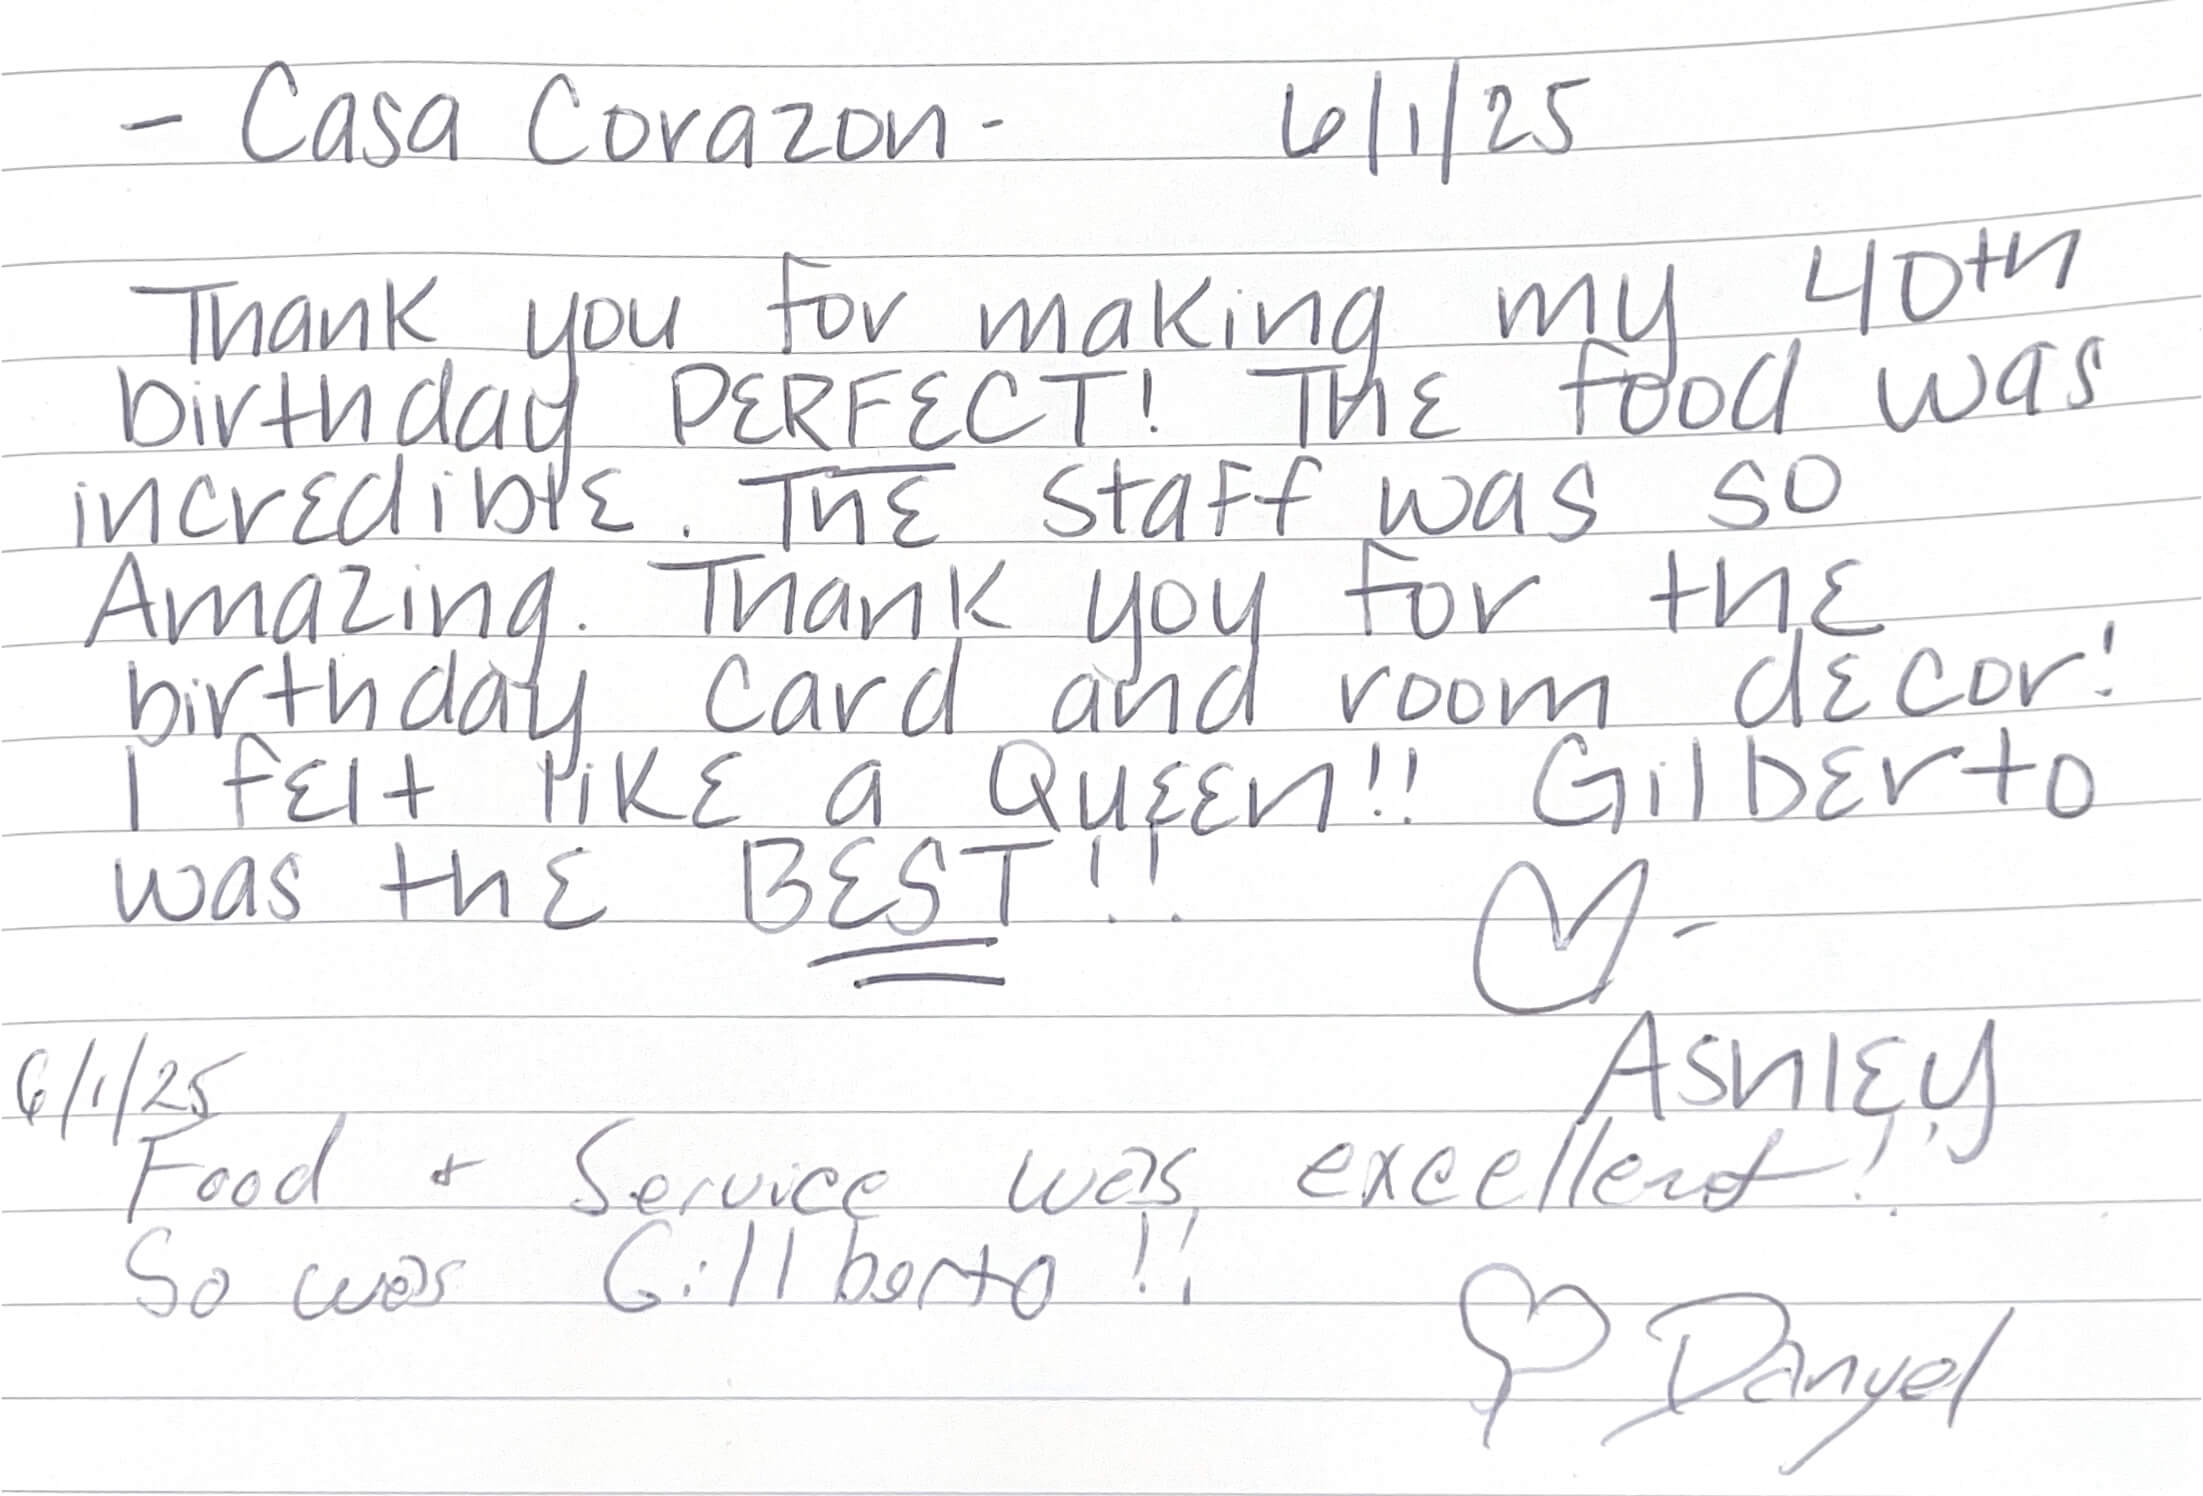 - Casa Corazon - 6/1/25
Thank you for making my 40th
birthday PERFECT! The food was
incredible. The staff was so
Amazing. Thank you for the
birthday card and room decor!
I felt like a Queen!! Gilberto
was the BEST!!
♡ -
Ashley
6/1/25
Food + Service was excellent!!
So was Gillberto!!
♡ Danyel